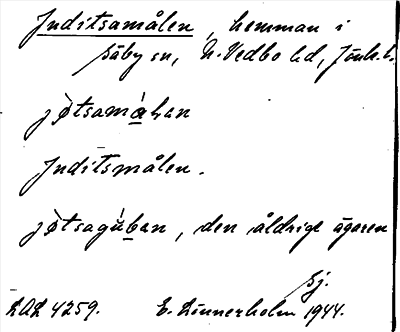 Juditsamålen, hemman i
Säby sn, N. Vedbo hd, Jönk. l.
jøtsamåLan
Juditsmålen.
jøtsagúban, den åldrige ägaren
Sj.
LAL 4259. E. Linnerholm 1944.